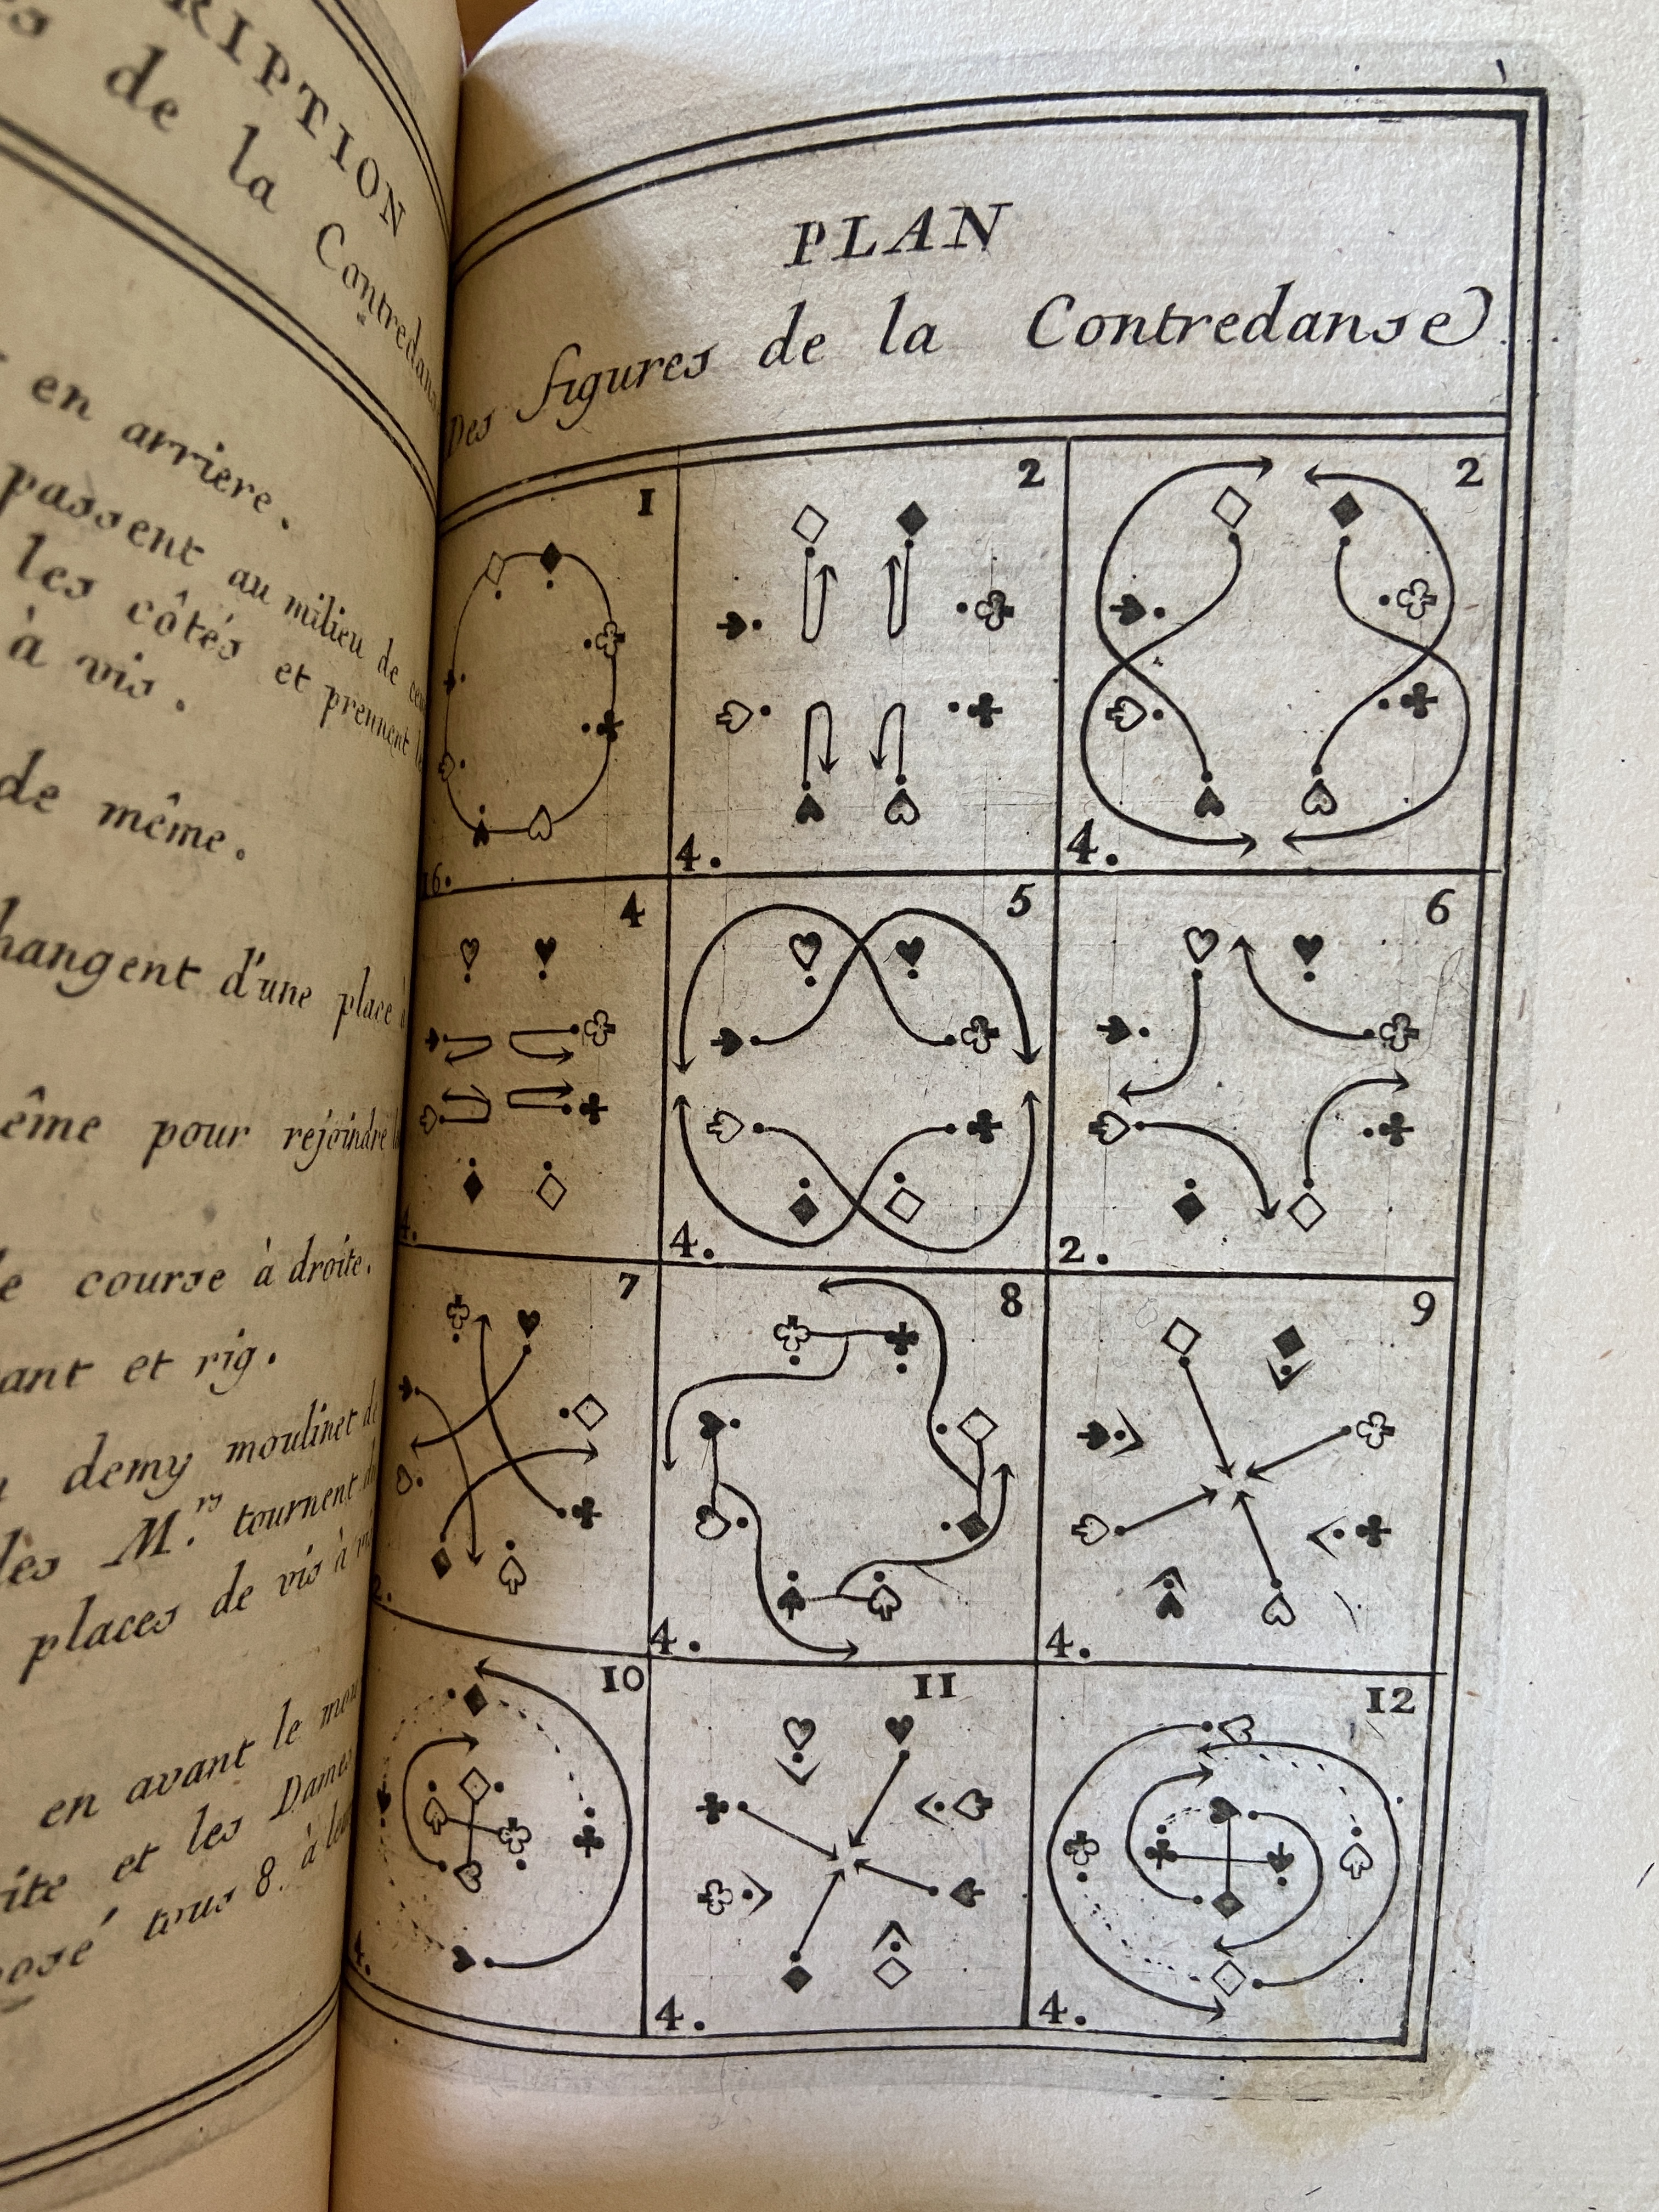 RIPTION
de la Contredan
en arriere.
passent au milieu de
les côtés et prennent
à vis.
de même.
hangent d'une place à
ême pour rejoindre
course à droite.
ant et rig.
demy moulinet de
les M.rs tournent
places de vis à
en avant le
ite et les Dames
osé tous 8. à
PLAN
Des figures de la Contredanse
1
16.
2
4.
2
4.
4
4.
5
4.
6
2.
7
2.
8
4.
9
4.
10
4.
11
4.
12
4.